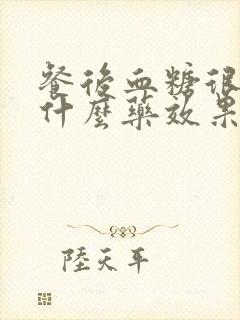 餐後血糖很
什麼藥效果
陸天平